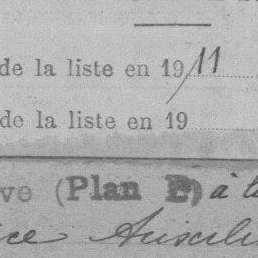 de la liste en 1911
de la liste en 19
ve (Plan E) à l
ice Auxili